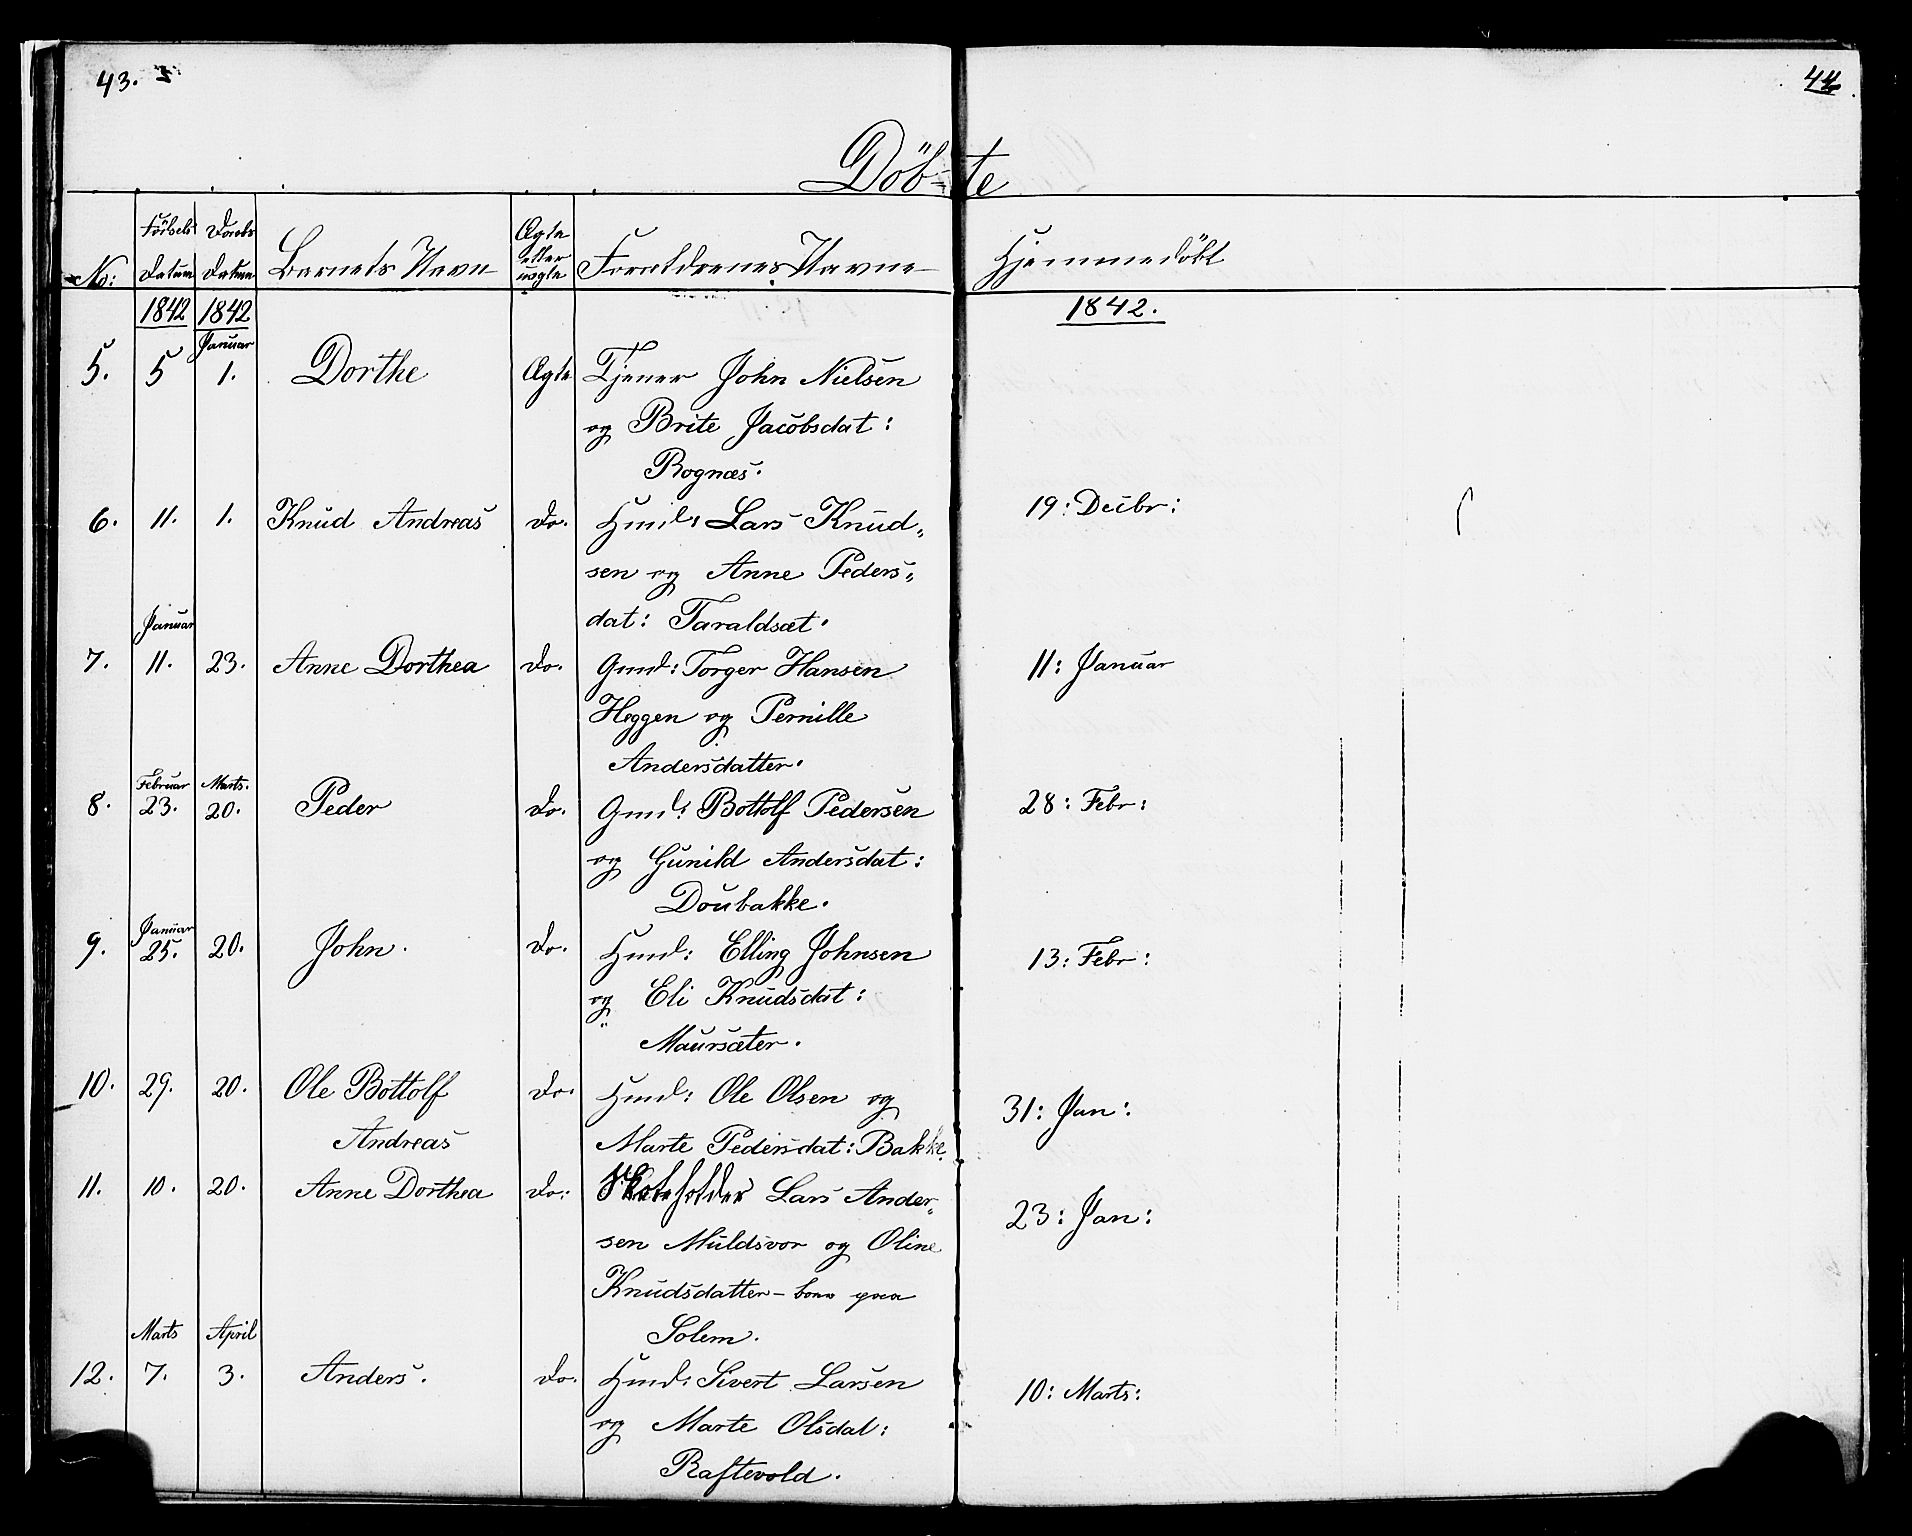 43.
44
Döbte
No: Födsels Datum Daabs Datum Barnets Navn Ægte eller uægte Forældrenes Navne Hjemmedöbt
1842 1842 1842.
Januar
5. 5 1. Dorthe Ægte Tjener John Nielsen
og Brite Jacobsdat:
Rognæs.
6. 11. 1. Knud Andreas do. Hmd: Lars Knud„ 19: Decbr:
sen og Anne Peders„
dat: Taraldsæt.
Januar
7. 11. 23. Anne Dorthea do. Gmd: Torger Hansen 11: Januar
Heggen og Pernille
Andersdatter.
Februar Marts.
8. 23. 20. Peder do. Gmd: Bottolf Pedersen 28: Febr:
og Gunild Andersdat:
Doubakke.
Januar
9. 25. 20. John. do. Hmd: Elling Johnsen 13: Febr:
og Eli Knudsdat:
Maursæter.
10. 29. 20. Ole Bottolf do. Hmd: Ole Olsen og 31: Jan:
Andreas Marte Pedersdat: Bakke.
11. 10. 20. Anne Dorthea do: Lars Ander„ 23: Jan:
sen Muldsvor og Oline
Knudsdatter – boer paa
Solem.
Marts April
12. 7. 3. Anders. do. Hmd: Sivert Larsen 10: Marts:
og Marte Olsdat:
Raftevold.